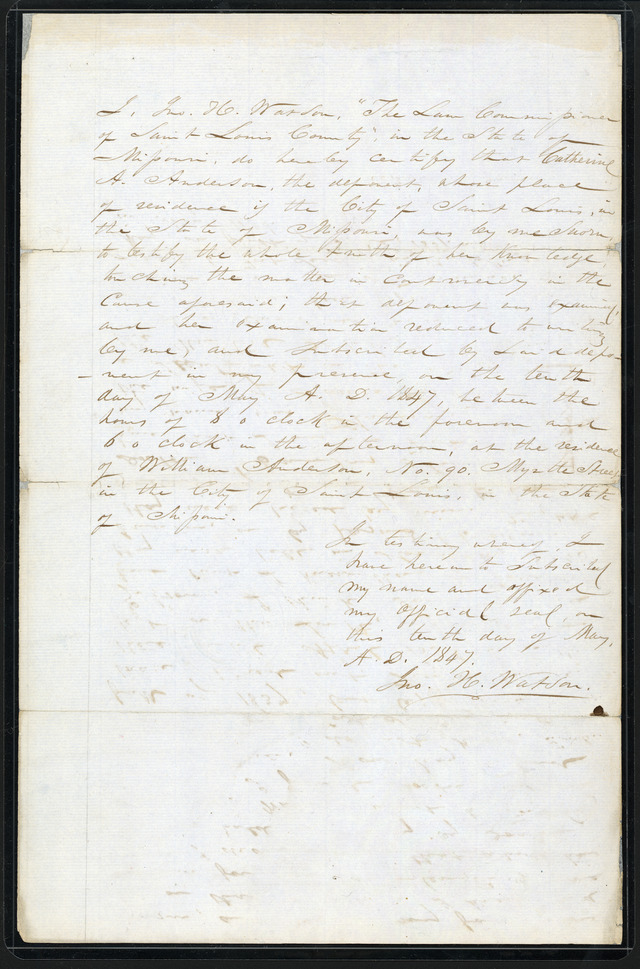 I, Jno. H. Watson, "The Law Commissioner
of Saint Louis County", in the State of
Missouri, do hereby certify that Catherine
A. Anderson, the deponent, whose place
of residence is the City of Saint Louis, in
the State of Missouri, was by me sworn
to testify the whole truth of her knowledge,
touching the matter in controversy in the
cause aforesaid; that deponent was examined,
and her examination reduced to writing
by me, and subscribed by said depo-
nent in my presence, on the tenth
day of May A. D. 1847, between the
hours of 8 o clock in the forenoon and
6 o clock in the afternoon, at the residence
of William Anderson, No. 90. Myrtle Street
in the City of Saint Louis, in the State
of Missouri.
In testimony whereof, I
have hereunto subscribed
my name and affixed
my official seal, on
this tenth day of May,
A. D. 1847.
Jno. H. Watson.